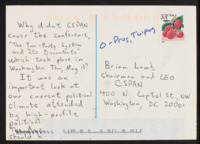 Why didn't CSPAN
cover the conference,
"The Two-Party System
and Its Discontents"
which took place in
Washington Thu, May 11?
It was an
important look at
our current political
climate attended
by high-profile
political
should
Brian Lamb
Chairman and CEO
CSPAN
400 N. Capitol St, NW
Washington, DC 20001